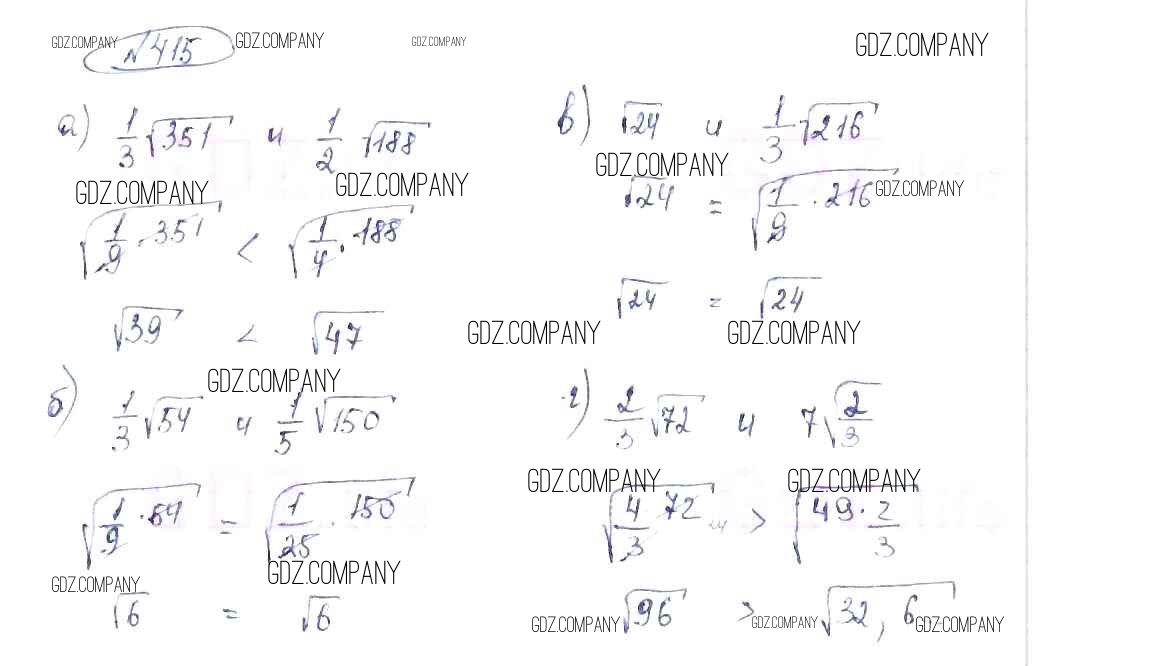 GDZ.COMPANY №415 GDZ.COMPANY GDZ.COMPANY GDZ.COMPANY
а) 1/3 √351 и 1/2 √188
GDZ.COMPANY GDZ.COMPANY
√(1/9 · 351) < √(1/4 · 188)
√39 < √47
GDZ.COMPANY
б) 1/3 √54 и 1/5 √150
√(1/9 · 54) = √(1/25 · 150)
GDZ.COMPANY GDZ.COMPANY
√6 = √6
в) √24 и 1/3 √216
GDZ.COMPANY
√24 = √(1/9 · 216) GDZ.COMPANY
√24 = √24
GDZ.COMPANY GDZ.COMPANY
г) 2/3 √72 и 7√(2/3)
GDZ.COMPANY GDZ.COMPANY
√(4/3 72) > √(49 · 2/3)
√96 > √32,6
GDZ.COMPANY GDZ.COMPANY GDZ.COMPANY